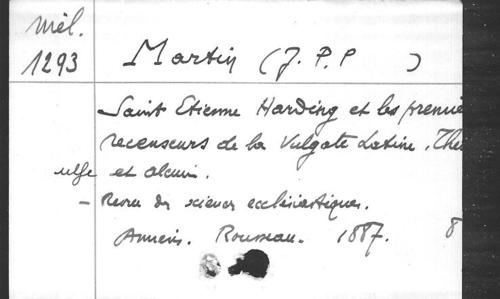 Mél.
1293 Martin (J. P. P )
Saint Etienne Harding et les premie
recenseurs de la Vulgate Latine. Théo
ulfe et Alcuin.
— Revue des sciences ecclésiastiques.
Amiens. Rousseau. 1887. 8